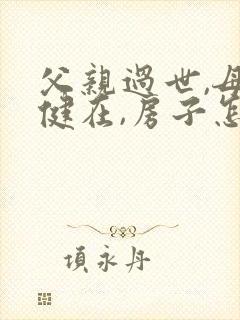 父親過世,母
健在,房子怎
項永丹